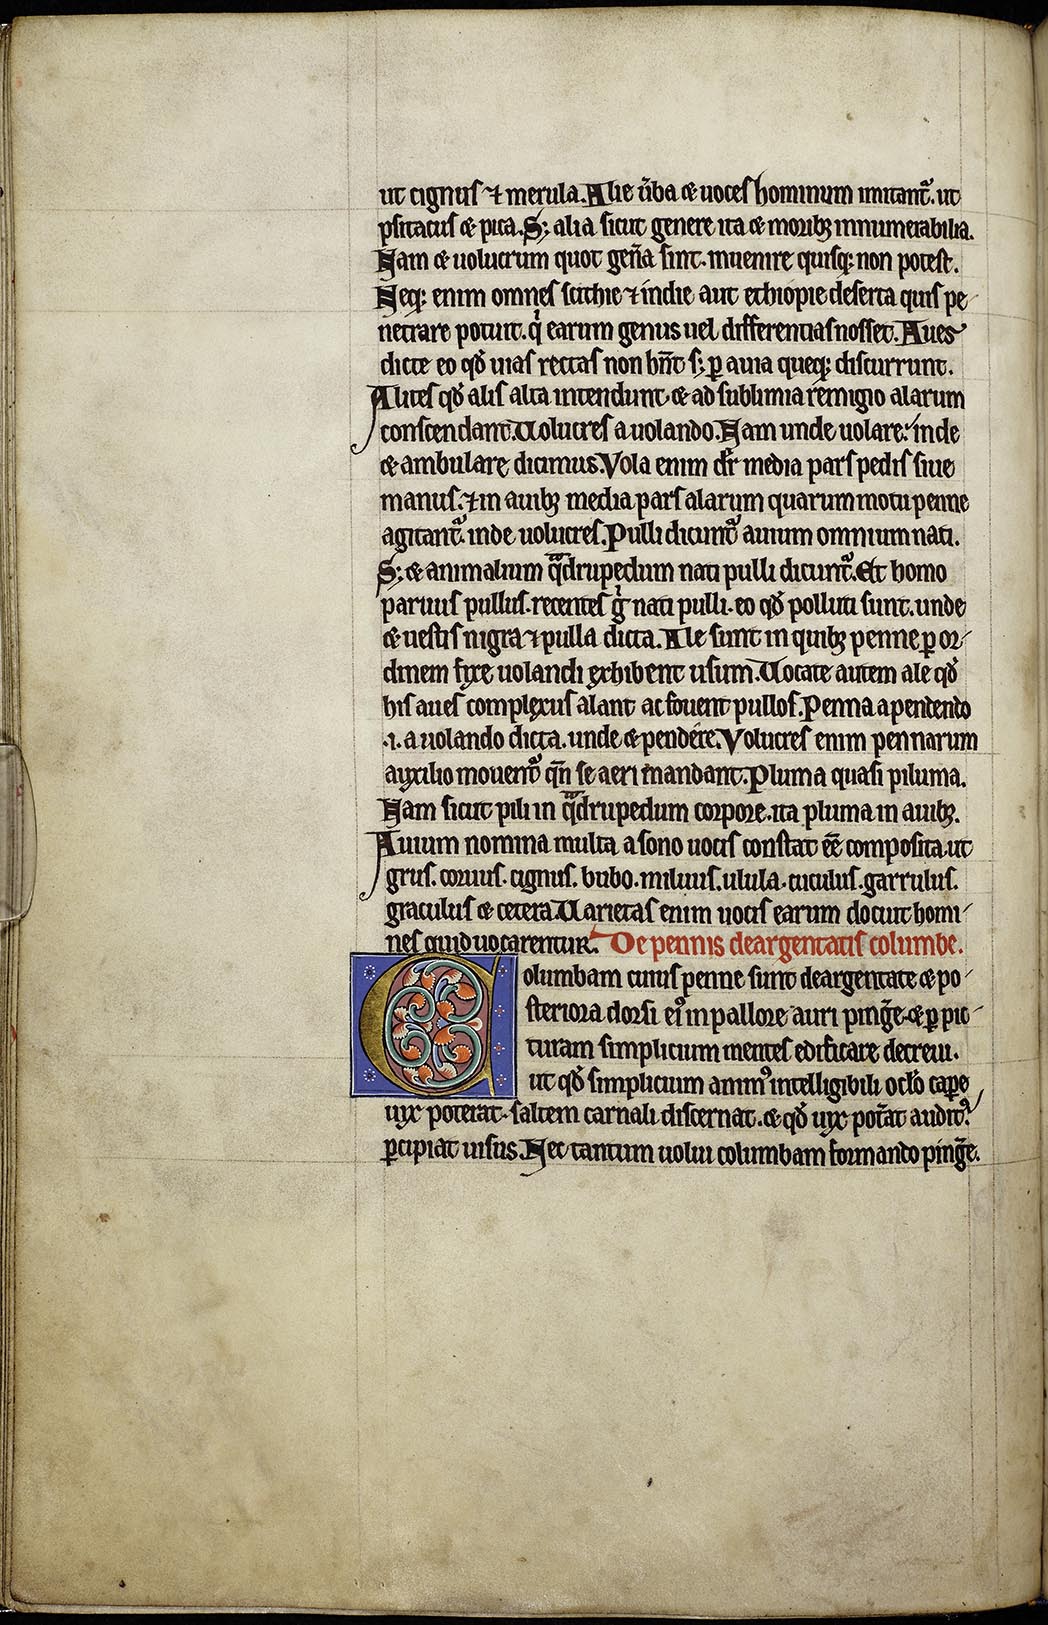 ut cignus ⁊ merula. Alie ũba & uoces hominum imitant᷑. ut
psitacus & pica. S; alia sicut genere ita & moribꝫ innumerabilia.
Nam & uolucrum quot geña sint. inuenire quisqꝫ non potest.
Neqꝫ enim omnes scithie ⁊ indie aut ethiopie deserta quis pe-
netrare potuit. qͥ earum genus uel differentias nosset. Aues
dicte eo qđ uias rectas non hñt s; ꝑ auia queqꝫ discurrunt.
Alites qđ alis alta intendunt. & ad sublimia remigio alarum
conscendant. Uolucres a uolando. Nam unde uolare. inde
& ambulare dicimus. Vola enim dr̄ media pars pedis siue
manus. ⁊ in auibꝫ media pars alarum quarum motu penne
agitant᷑. inde uolucres. Pulli dicunt᷑ auium omnium nati.
S; & animalium qᷓdrupedum nati pulli dicunt᷑. Et homo
paruus pullus. recentes gͥ nati pulli. eo qđ polluti sunt. unde
& uestis nigra ⁊ pulla dicta. Ale sunt in quibꝫ penne ꝑ or-
dinem fixe uolandi exhibent usum. Uocate autem ale qđ
his aues complexus alant ac fouent pullos. Penna a pendendo
.i. a uolando dicta. unde & pendere. Volucres enim pennarum
auxilio mouent᷑ qñ se aeri mandant. Pluma quasi piluma.
Nam sicut pili in qᷓdrupedum corpore. ita pluma in auibꝫ.
Auium nomina multa a sono uocis constat eē composita. ut
grus. coruus. cignus. bubo. miluus. ulula. cuculus. garrulus.
graculus & cetera. Uarietas enim uocis earum docuit homi-
nes quid uocarentur. De pennis deargentatis columbe.
Columbam cuius penne sunt deargentate & po-
steriora dorsi eiꝰ in pallore auri ping̃e. & ꝑ pic-
turam simplicium mentes edificare decreui.
ut qđ simplicium animꝰ intelligibili oc̄lo caꝑe
uix poterat. saltem carnali discernat. & qđ uix pot̃at auditꝰ
ꝑcipiat uisus. Nec tantum uolui columbam formando ping̃e.